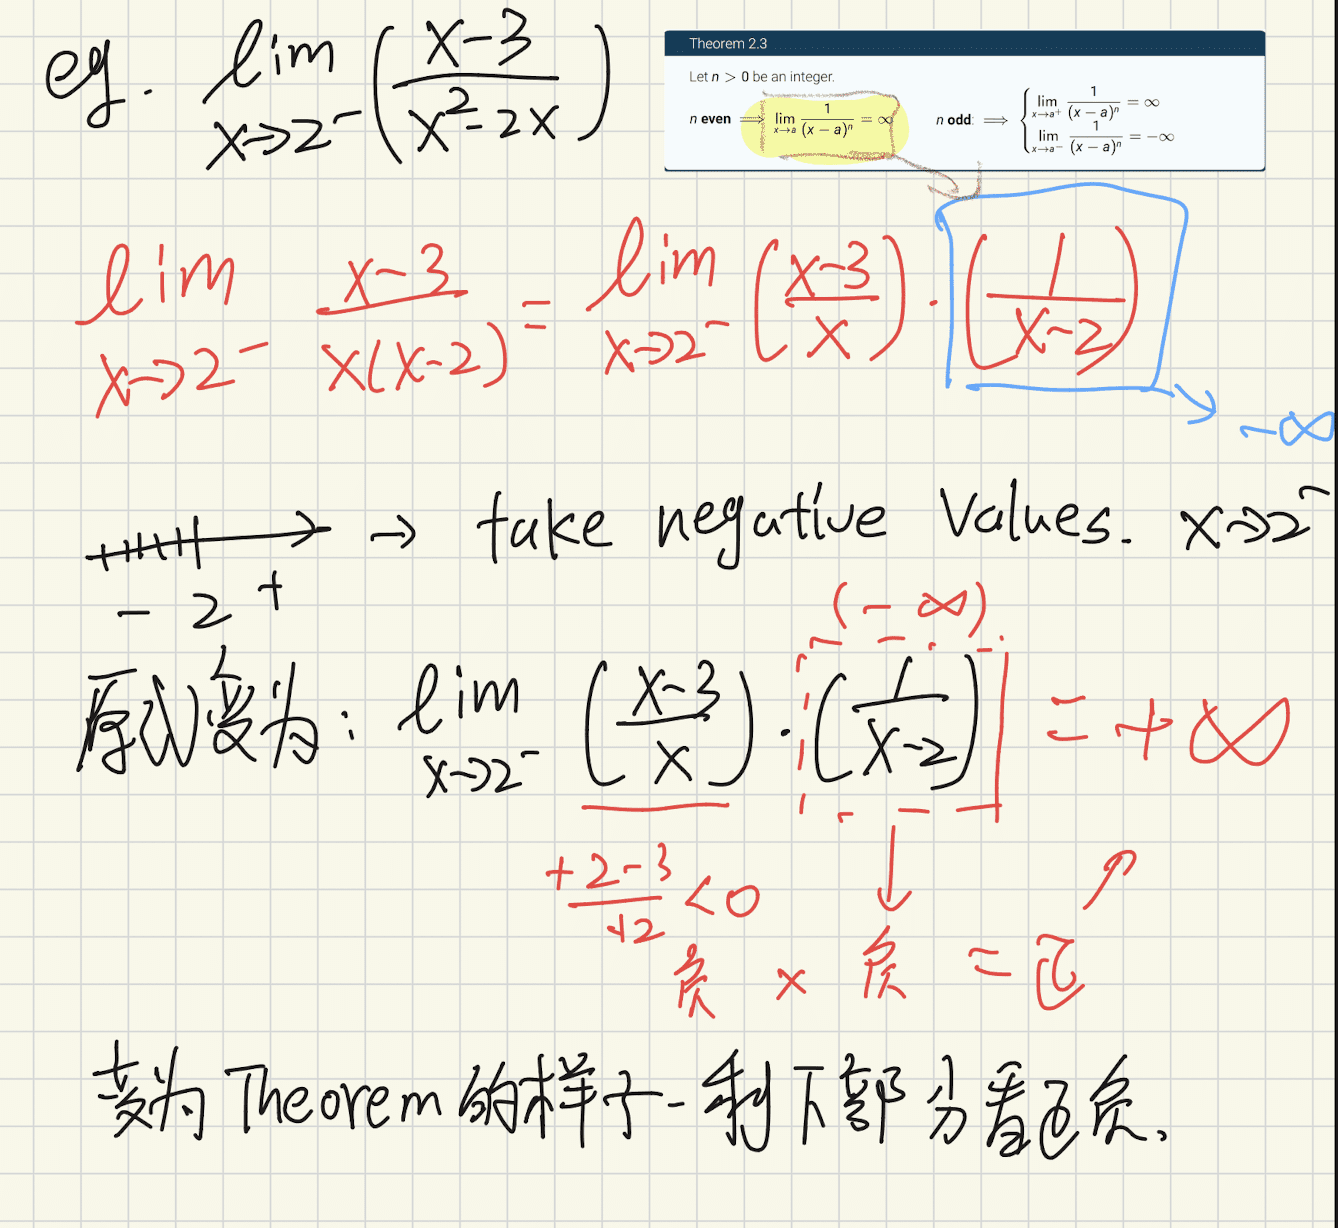 eg. lim x→2⁻ ( (x-3)/(x²-2x) )
Theorem 2.3
Let n > 0 be an integer.
n even ⟹ lim x→a 1/(x − a)ⁿ = ∞
n odd: ⟹ { lim x→a⁺ 1/(x − a)ⁿ = ∞
lim x→a⁻ 1/(x − a)ⁿ = −∞
lim x→2⁻ (x-3)/(x(x-2)) = lim x→2⁻ ((x-3)/x) · (1/(x-2))
-∞
→ take negative values. x→2⁻
- 2 +
(-∞)
原式变为: lim x→2⁻ ((x-3)/x) · (1/(x-2)) = +∞
(+2-3)/(+2) < 0
负 × 负 = 正
变为 Theorem 的样子 - 剩下部分看正负.